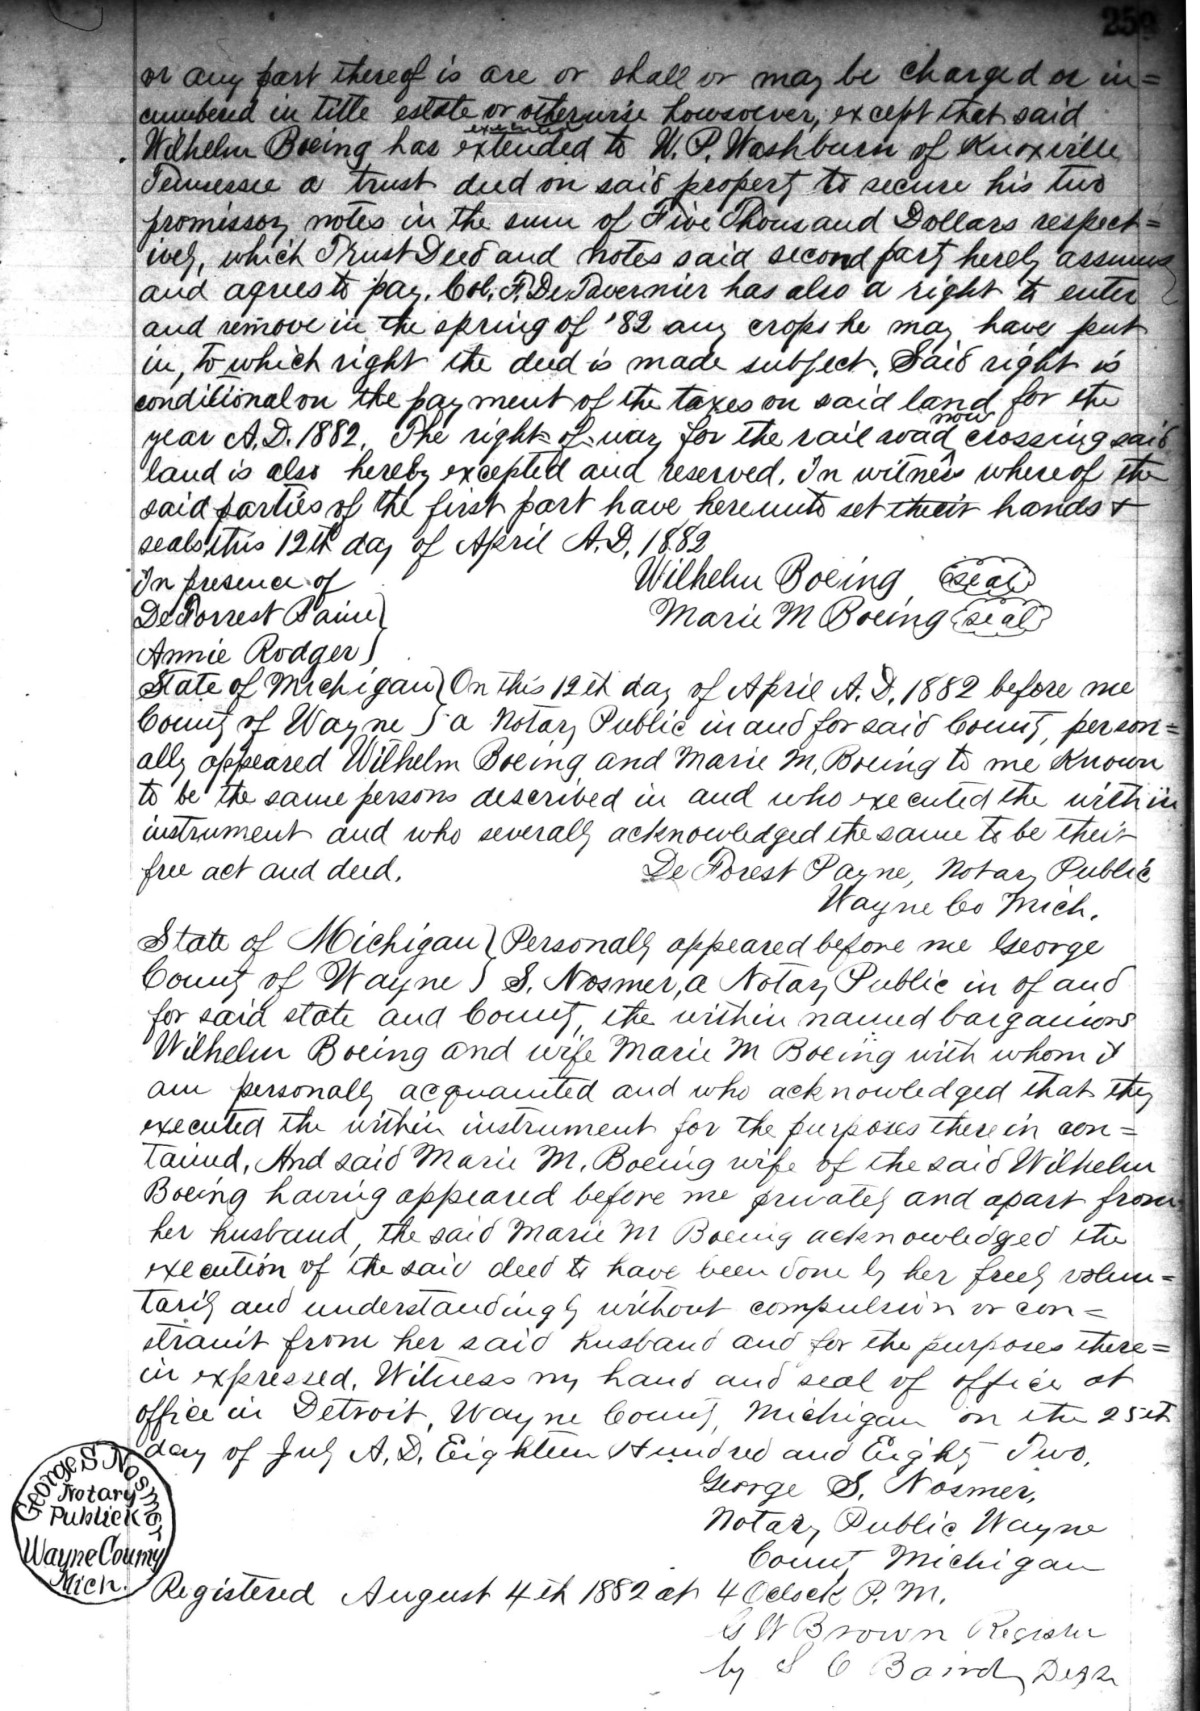 or any part thereof is are or shall or may be charged or in=
cumbered in title estate or otherwise howsoever, except that said
executed
Wilhelm Boeing has extended to W. P. Washburn of Knoxville
Tennessee a trust deed on said property to secure his two
promissory notes in the sum of Five Thousand Dollars respect=
ively, which Trust Deed and notes said second party hereby assumes
and agrees to pay. Col. F. De Tavernier has also a right to enter
and remove in the spring of '82 any crops he may have put
in, to which right the deed is made subject. Said right is
conditional on the payment of the taxes on said land for the
now
year A.D. 1882. The right-of-way for the rail road crossing said
land is also hereby excepted and reserved. In witness whereof the
said parties of the first part have hereunto set their hands &
seals this 12th day of April A.D. 1882
In presence of
Wilhelm Boeing (seal)
De Forrest Paine }
Marie M Boeing (seal)
Annie Rodger }
State of Michigan } On this 12th day of April A.D. 1882 before me
County of Wayne } a Notary Public in and for said County, person=
ally appeared Wilhelm Boeing and Marie M. Boeing to me Known
to be the same persons described in and who executed the within
instrument and who severally acknowledged the same to be their
free act and deed. De Forest Payne, Notary Public
Wayne Co Mich.
State of Michigan } Personally appeared before me George
County of Wayne } S. Nosmer, a Notary Public in of and
for said state and County, the within named bargainors
Wilhelm Boeing and wife Marie M Boeing with whom I
am personally acquainted and who acknowledged that they
executed the within instrument for the purposes therein con=
tained. And said Marie M. Boeing wife of the said Wilhelm
Boeing having appeared before me privately and apart from
her husband, the said Marie M Boeing acknowledged the
execution of the said deed to have been done by her freely volun=
tarily and understandingly without compulsion or con=
straint from her said husband and for the purposes there=
in expressed. Witness my hand and seal of office at
office in Detroit, Wayne County, Michigan on the 25th
day of July A.D. Eighteen Hundred and Eighty Two.
George S. Nosmer
Notary
Publick
Wayne County
Mich.
George S. Nosmer,
Notary Public Wayne
County Michigan
Registered August 4th 1882 at 4 Oclock P.M.
G W Brown Register
by S C Baird